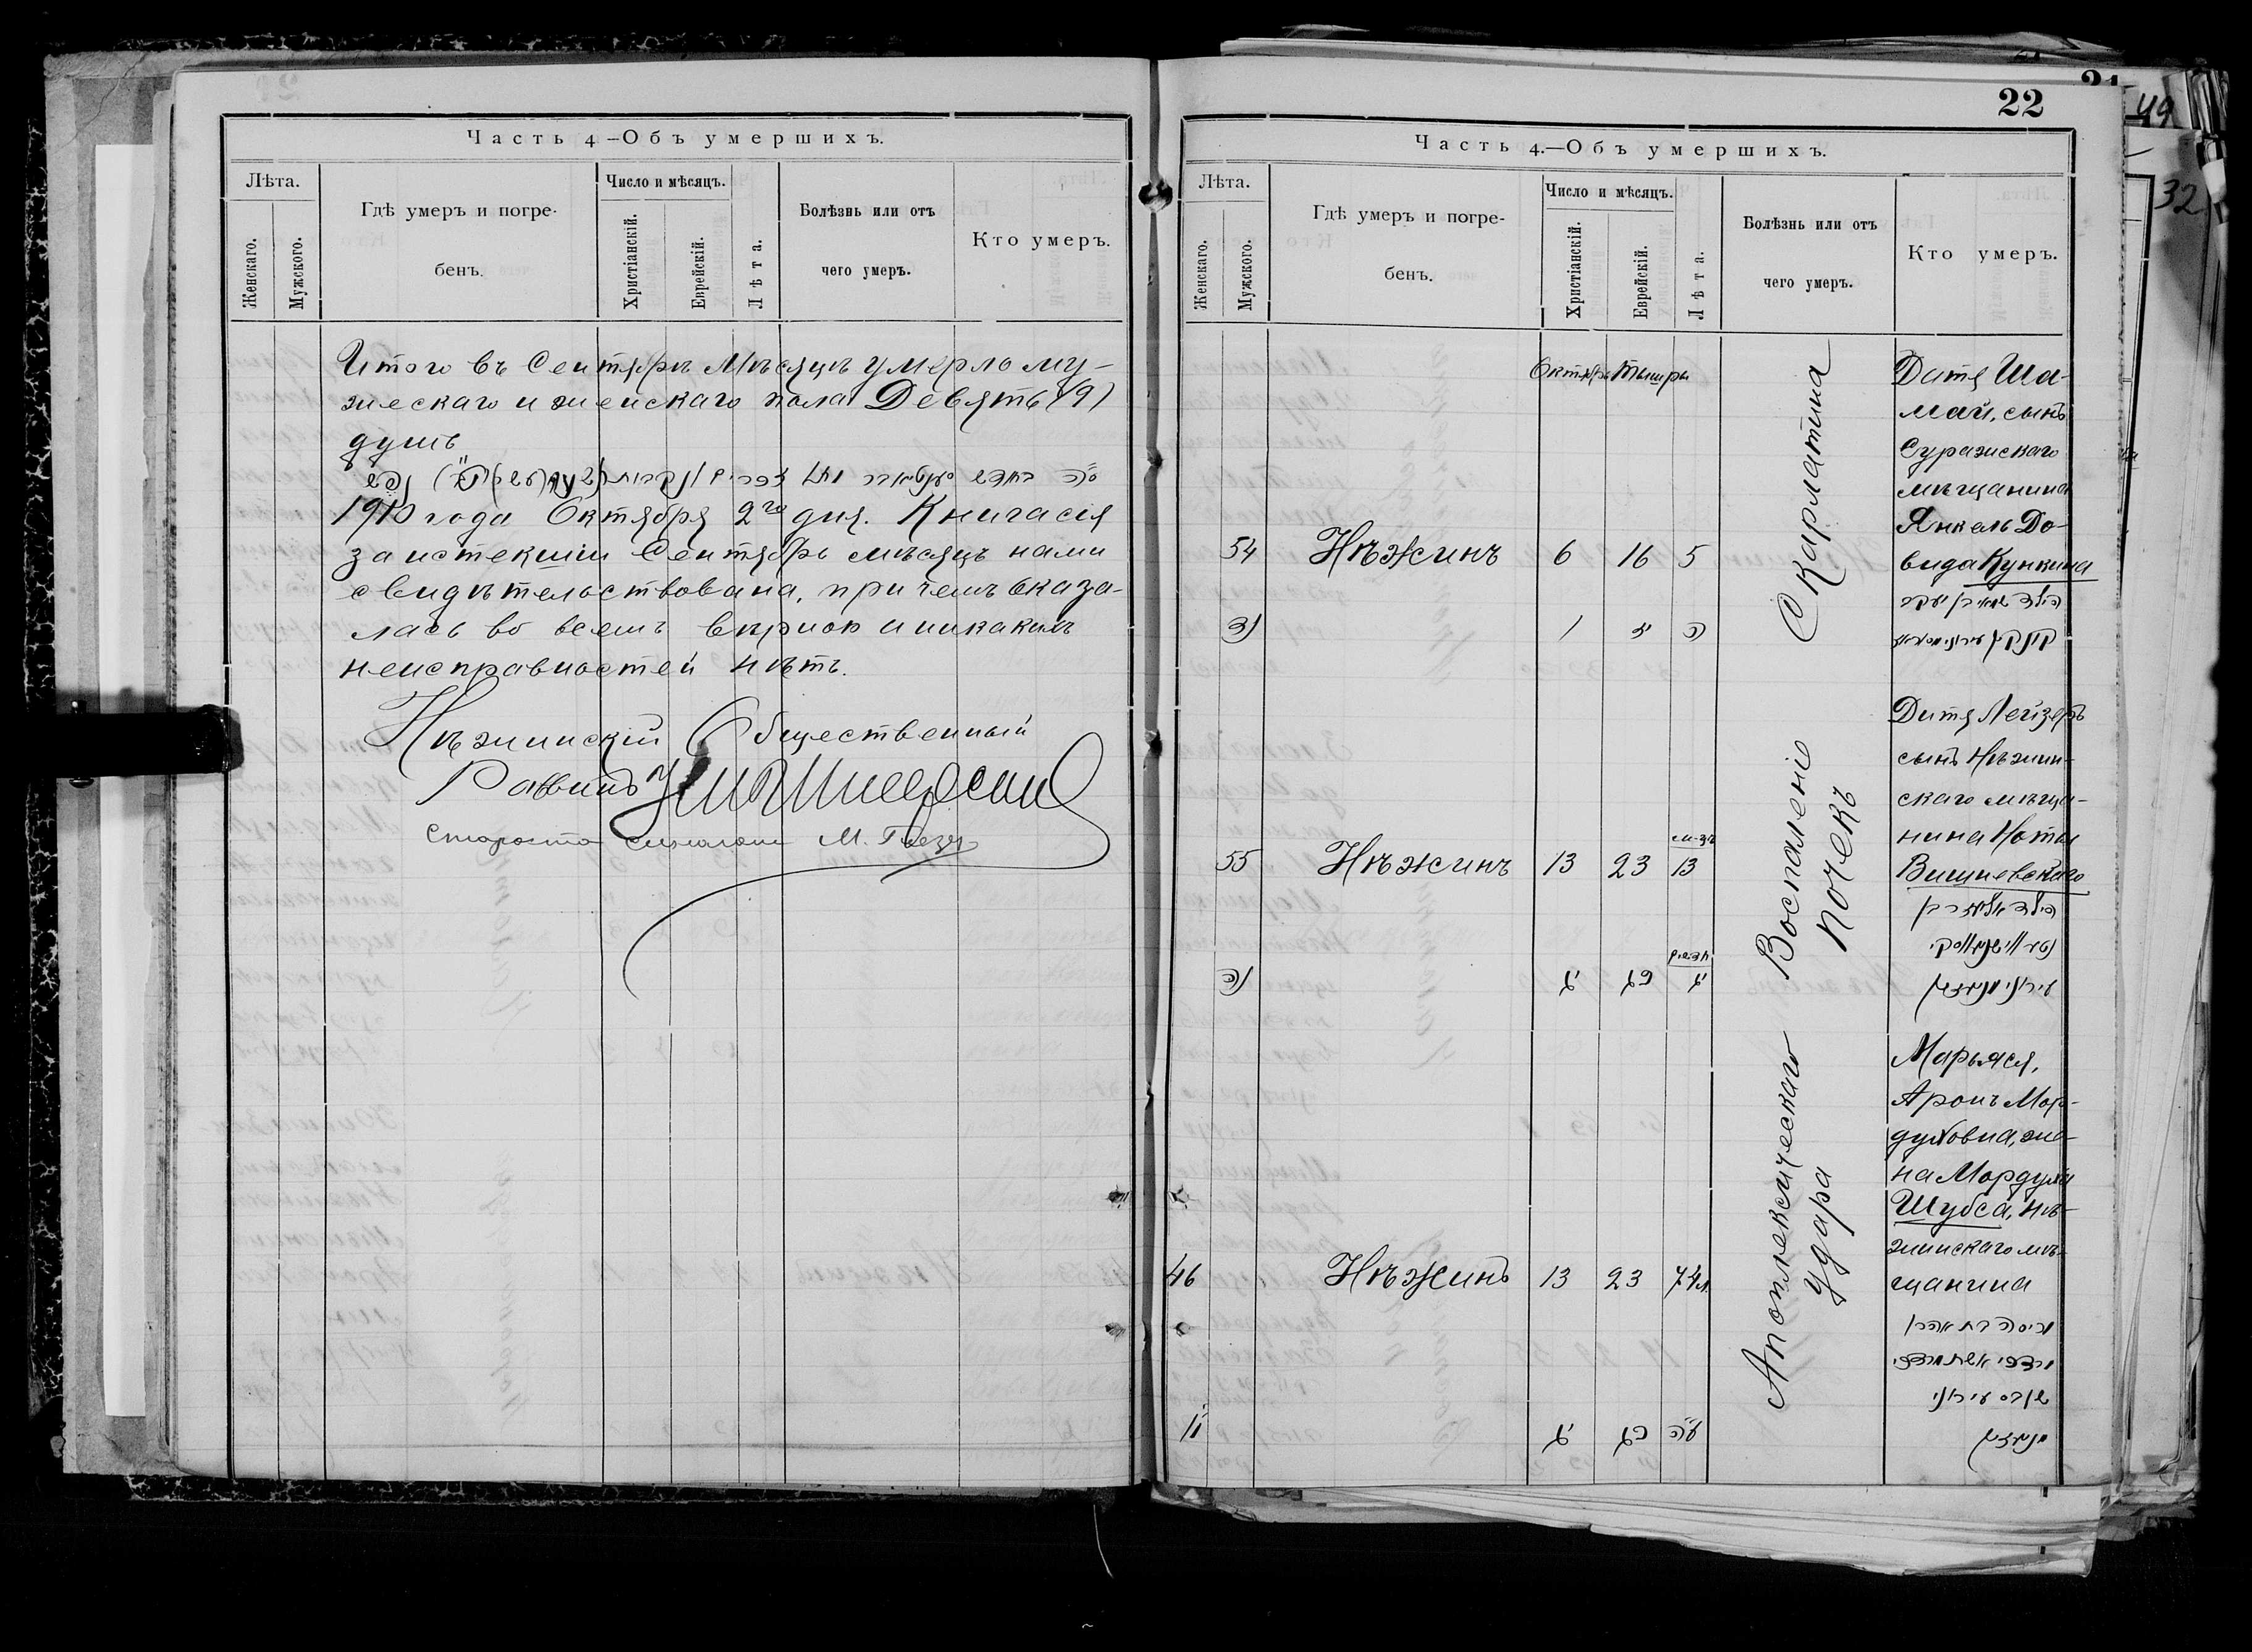 Часть 4—Объ умершихъ.
Лѣта.
Женскаго.
Мужского.
Гдѣ умеръ и погре-
бенъ.
Число и мѣсяцъ.
Христіанскій.
Еврейскій.
Лѣта.
Болѣзнь или отъ
чего умеръ.
Кто умеръ.
Итого въ Сентябрѣ Мѣсяцѣ умерло му-
жескаго и женскаго пола Девять (9)
душъ
1910 года Октября 2го дня. Книга сія
за истекшій Сентябрь мѣсяцъ нами
свидѣтельствована, при чемъ оказа-
лась во всемъ вѣрною и никакихъ
неисправностей нѣтъ.
Нѣжинскій Общественный
Раввинъ
Староста синагоги М.
21
22
49
32
Часть 4.—Объ умершихъ.
Лѣта.
Женскаго.
Мужского.
Гдѣ умеръ и погре-
бенъ.
Число и мѣсяцъ.
Христіанскій.
Еврейскій.
Лѣта.
Болѣзнь или отъ
чего умеръ.
Кто умеръ.
Октябрь Тишри
54 Нѣжинъ 6 16 5
נד ו יו ה
Скарлатина
Дитя Ша-
май, сынъ
Суражскаго
мѣщанина
Янкель До-
вида Кункина
55 Нѣжинъ 13 23 м-въ 13
נה יג כג יג
Воспаленіе
почекъ
Дитя Лейзеръ
сынъ Нѣжин-
скаго мѣща-
нина Ноты
Вишневскаго
הילד אליעזר בן
46 Нѣжинъ 13 23 74 л.
יג כג עד
Апоплексическаго
удара
Марьяся,
Аронъ Мор-
духовна, же-
на Мордуха
Шубса, Нѣ-
жинскаго мѣ-
щанина